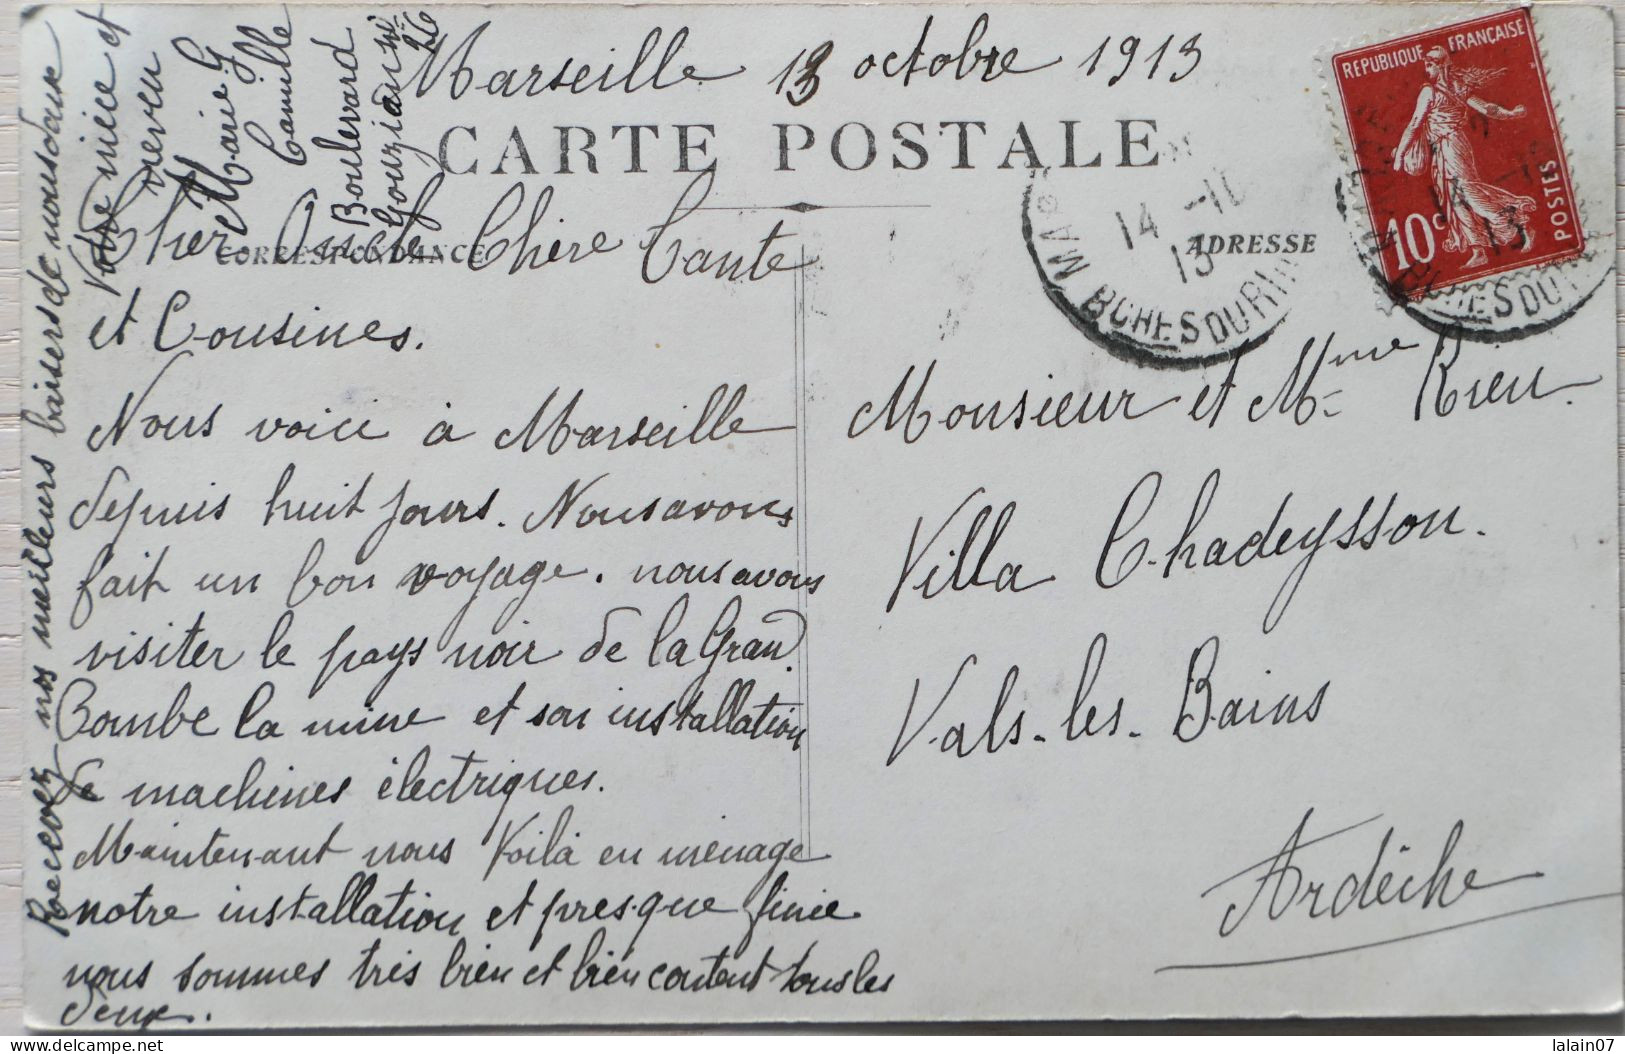 Marseille 13 octobre 1913
CARTE POSTALE
CORRESPONDANCE
ADRESSE
Cher Oncle Chère Tante
et Cousines.
Nous voici à Marseille
depuis huit jours. Nous avons
fait un bon voyage. nous avons
visiter le pays noir de la Grand
Combe la mine et son installation
de machines électriques.
Maintenant nous Voila en ménage
notre installation et presque finie
nous sommes très bien et bien content tous les
deux.
Recevez nos meilleurs baisers de nous deux
Votre nièce et
neveu
Marie G
Camille
Boulevard
Gouzian
26
Monsieur et Mme Rieu.
Villa Chadeysson.
Vals-les-Bains
Ardèche
REPUBLIQUE FRANÇAISE
10c
POSTES
14 -10
13
BCHES DU RH
14 -1
13
BCHES DU
lalain07